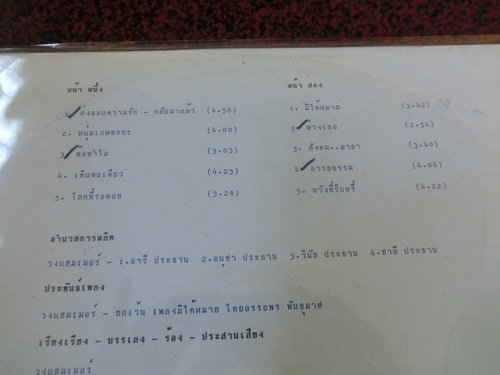 หน้า หนึ่ง
1. ส่งมอบความรัก - กลับมาแล้ว (4.56)
2. หนุ่มเกษตรกร (4.00)
3. ทอทำไม (3.03)
4. เดินคนเดียว (4.23)
5. โลกที่รอคอย (3.28)
หน้า สอง
1. มิได้หมาย (3.42)
2. ห่างเธอ (2.54)
3. สังคม..มายา (3.40)
4. อารยธรรม (4.06)
5. หวังที่ริบหรี่ (4.22)
อำนวยการผลิต
วงแฮมเมอร์ - 1.อารี ประธาน 2.อนุชา ประธาน 3.วินัย ประธาน 4.ชาลี ประธาน
ประพันธ์เพลง
วงแฮมเมอร์ - ยกเว้น เพลงมิได้หมาย โดยอรรถพร พันธุมาศ
เรียงเรียง - บรรเลง - ร้อง - ประสานเสียง
วงแฮมเมอร์